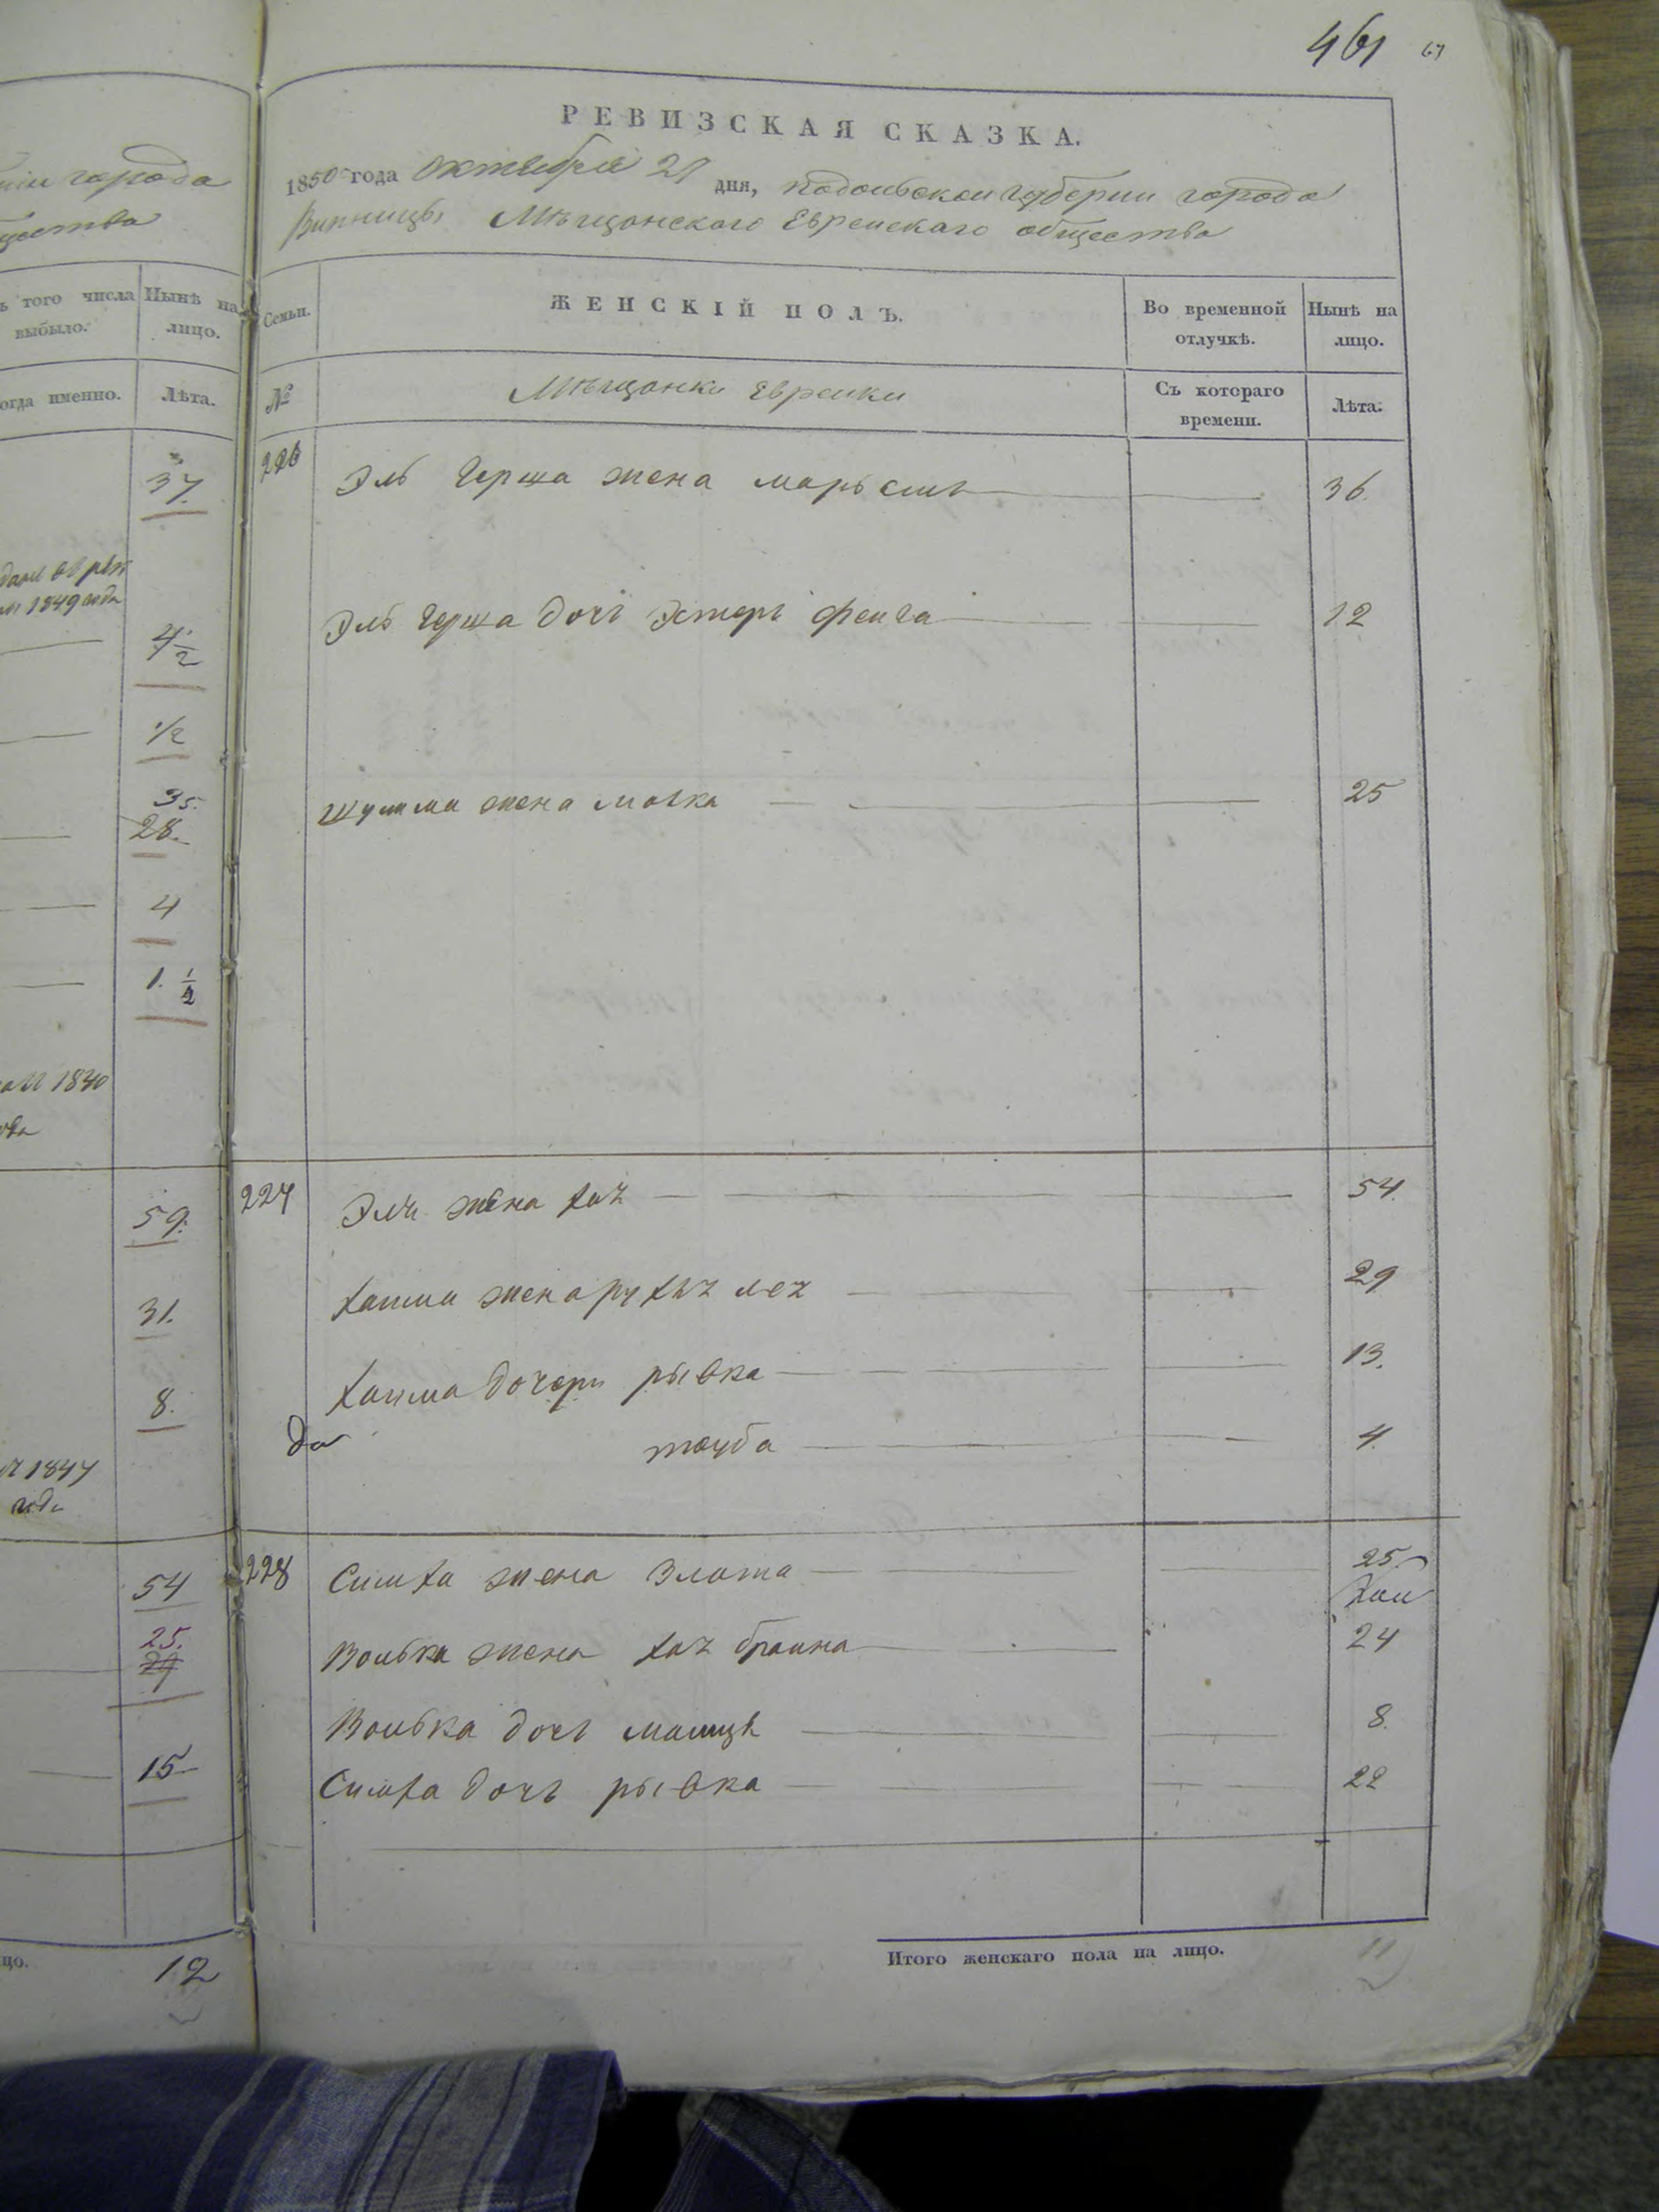 461 67
РЕВИЗСКАЯ СКАЗКА.
1850 года октября 27 дня, подольской губернии города
Винницы Мѣщанского Еврейскаго общества
города
щества
ъ того числа выбыло.
Нынѣ на лицо.
Семьи.
ЖЕНСКІЙ ПОЛЪ.
Во временной отлучкѣ.
Нынѣ на лицо.
огда именно.
Лѣта.
№
Мѣщанки Еврейки
Съ котораго времени.
Лѣта.
37
226 Эль Герша жена марьемъ 36
1849 года
4 1/2
Эль Герша дочь Эстеръ фейга 12
1/2
35.
28.
жена малка 25
4
1. 1/2
1840
59. 227 жена хая 54.
31. Хаима жена рухля лея 29
8. Хаима дочери рывка 13.
до тауба 4.
1847
года
54 228 Симха жена Злата 25.
25.
29
Вольвка жена хая браина 24
Вольвка дочь малця 8.
15 Симха дочь рывка 22
цо. 12
Итого женскаго пола на лицо. 11